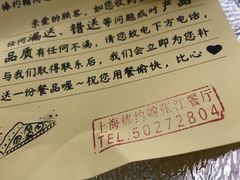 亲爱的顾客，如您收到
任何漏送、错送等问题或对产品
品质有任何不满，请您致电下方电话，
与我们取得联系后，我们会立即为您补
送一份餐品喔~祝您用餐愉快，比心
上海棒约翰张江餐厅
TEL.50272804